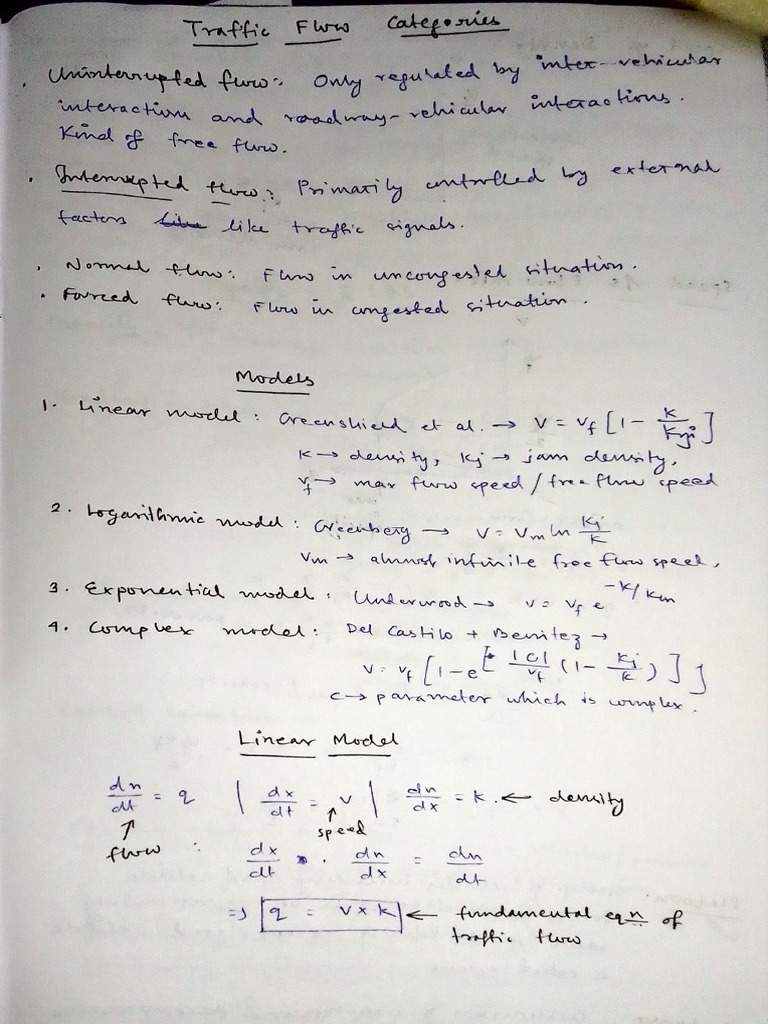 Traffic Flow Categories
. Uninterrupted flow: Only regulated by inter-vehicular
interaction and roadway-vehicular interactions.
Kind of free flow.
. Interrupted flow: Primarily controlled by external
factors like like traffic signals.
. Normal flow: Flow in uncongested situation.
. Forced flow: Flow in congested situation.
Models
1. Linear model: Greenshield et al. → V = Vf [1 - K/Kj]
K → density, Kj → jam density,
Vf → max flow speed / free flow speed
2. Logarithmic model: Greenberg → V = Vm ln Kj/K
Vm → almost infinite free flow speed,
3. Exponential model: Underwood → V = Vf e^(-K/Km)
4. Complex model: Del Castilo + Benitez →
V = Vf [1 - e^[|C|/Vf (1 - Kj/K)]]
C → parameter which is complex.
Linear Model
dn/dt = q | dx/dt = v | dn/dx = K. ← density
↑ flow ↑ speed
∴ dx/dt . dn/dx = dn/dt
⇒ q = V × K ← fundamental eqn of
traffic flow